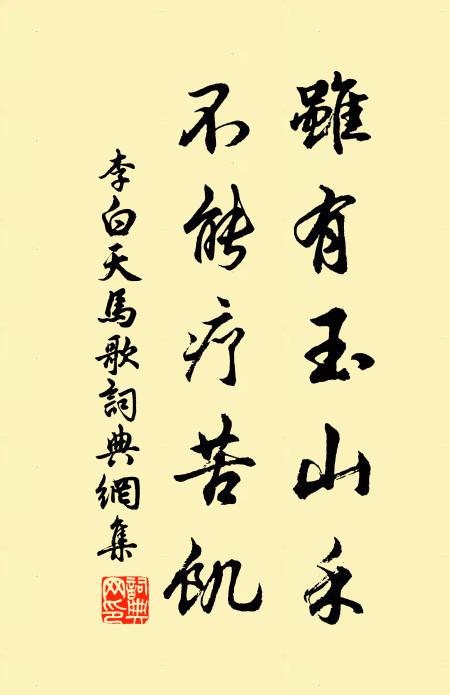 雖有玉山禾
不能疗苦飢
李白天馬歌詞典網集
詞典网印